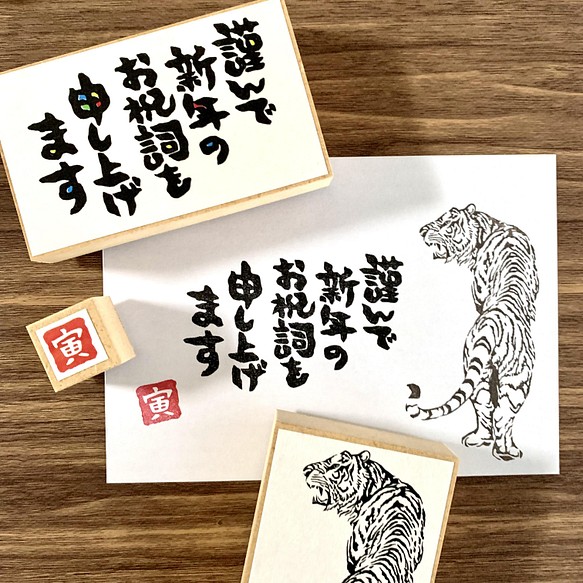 謹んで
新年の
お祝詞を
申し上げ
ます
寅
謹んで
新年の
お祝詞を
申し上げ
ます
寅